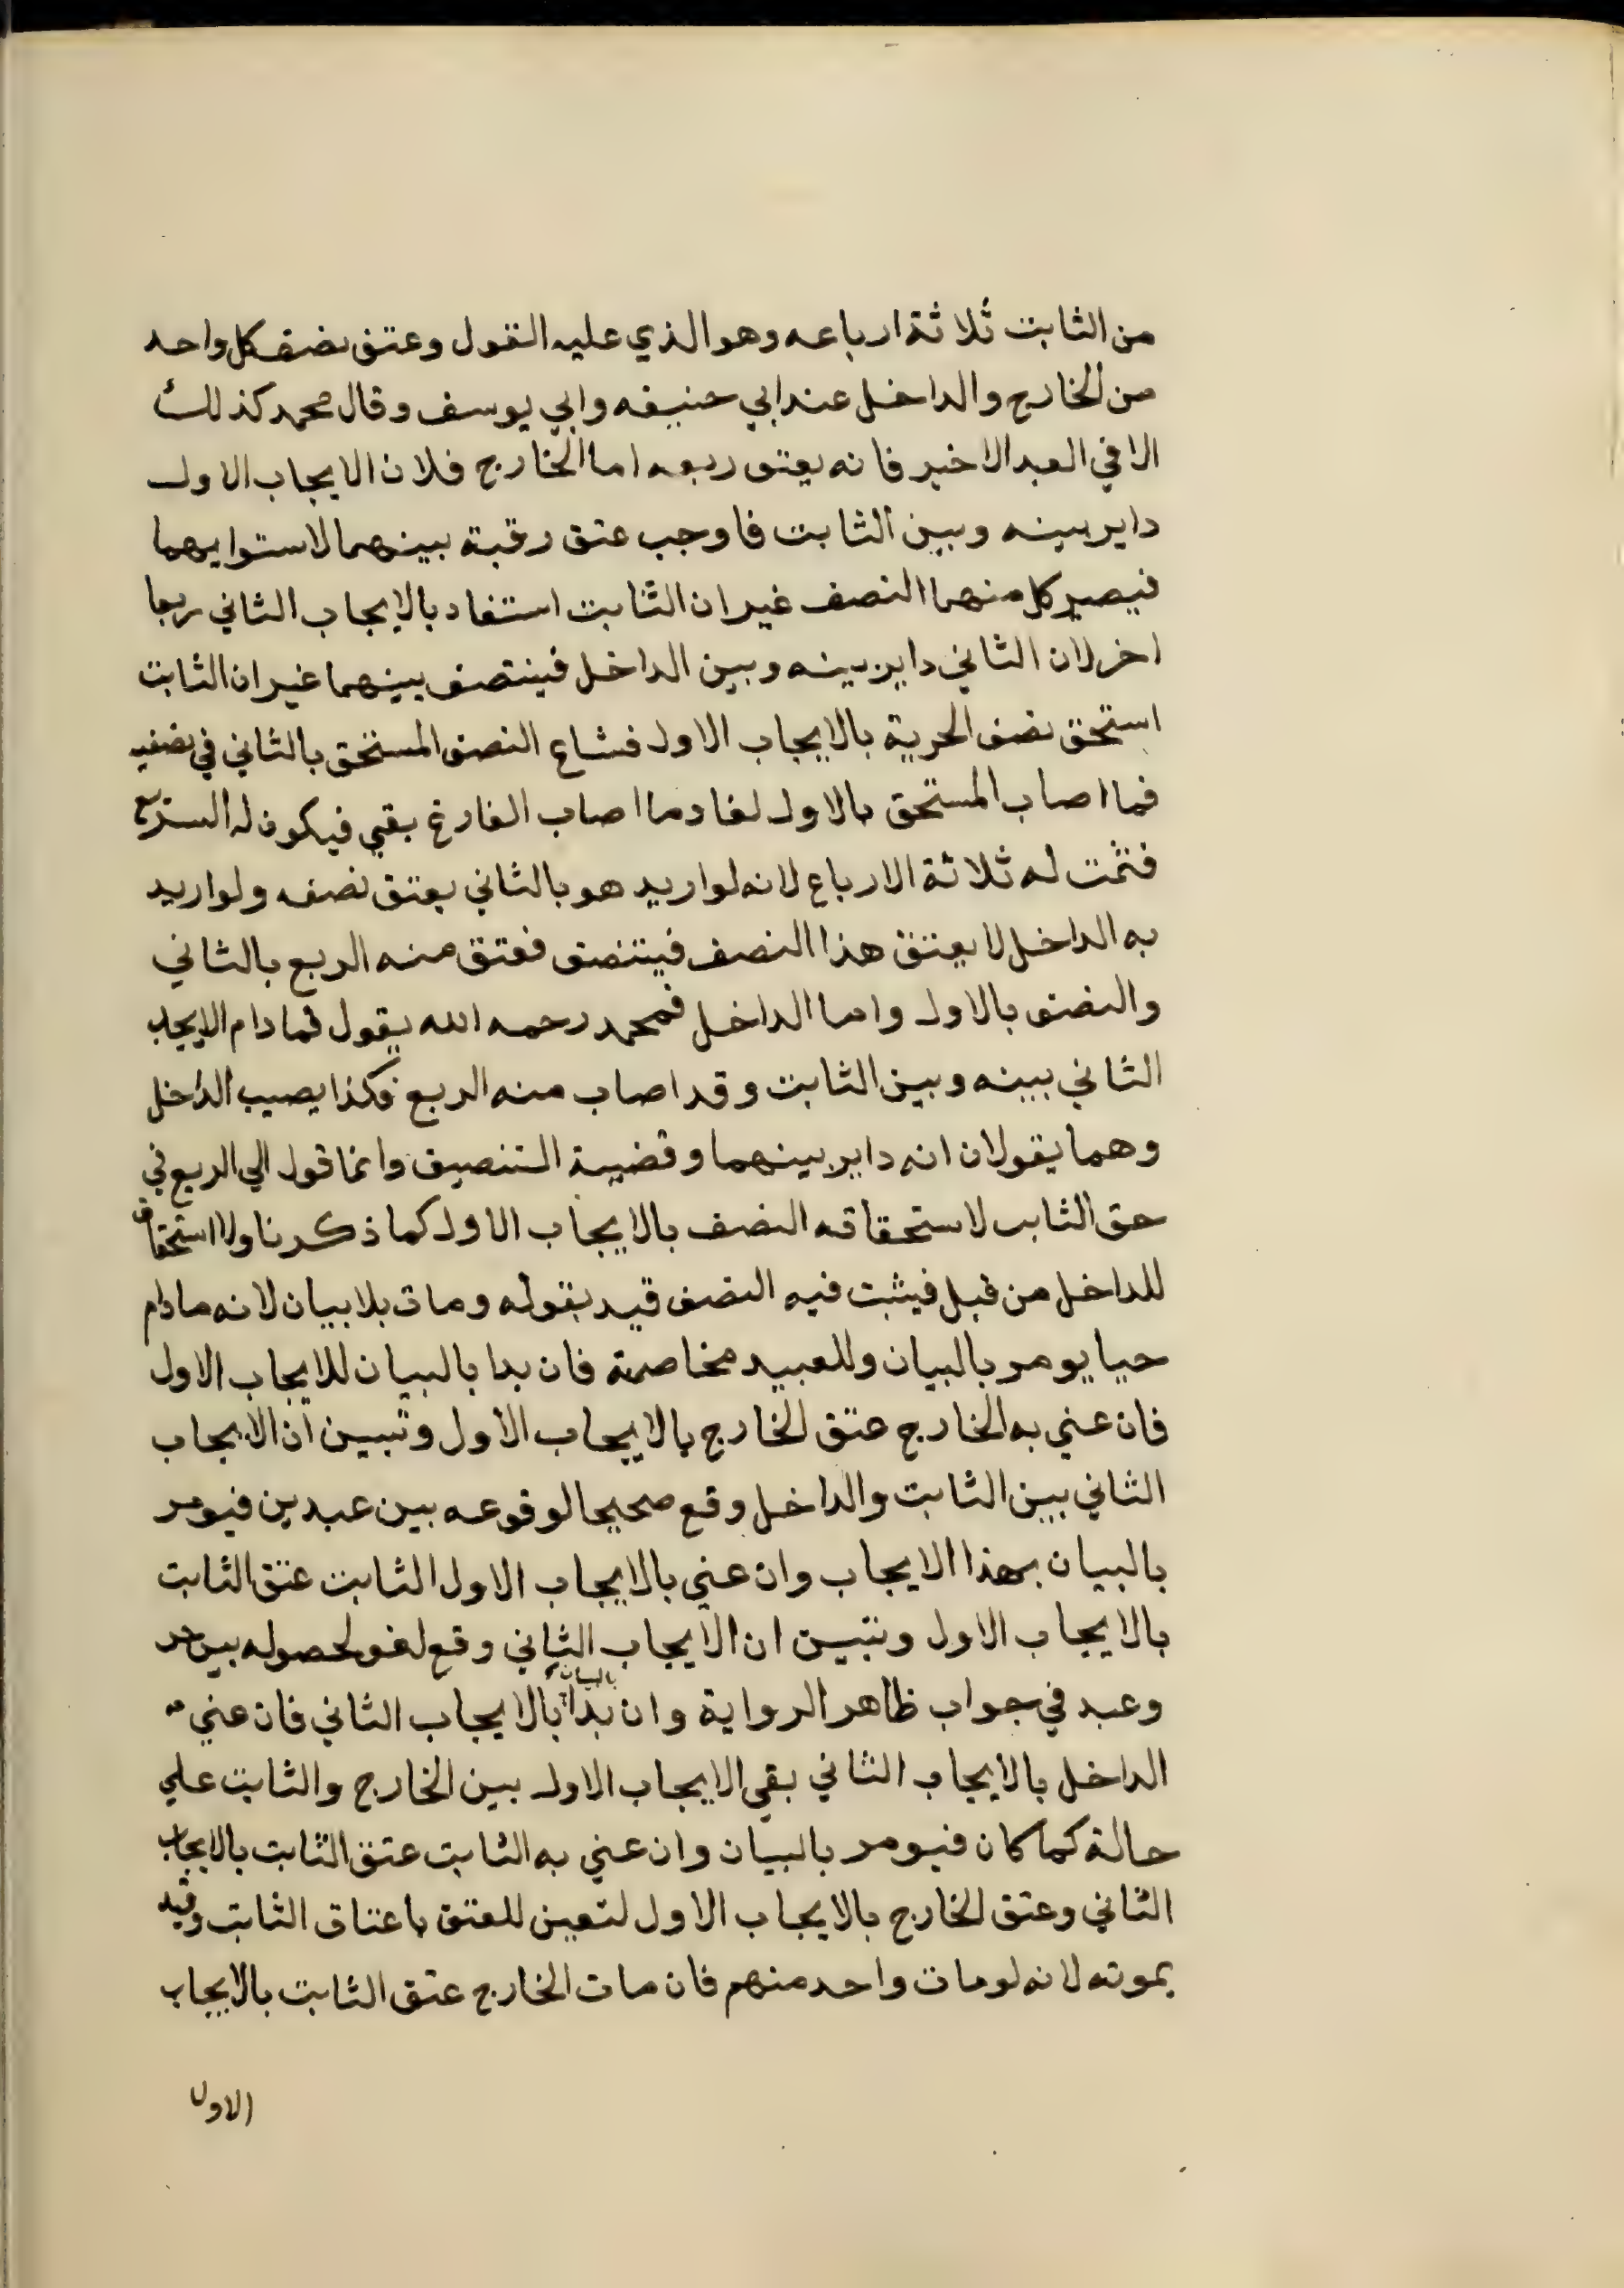 من الثابت ثلاثة ارباعه وهو الذي عليه القول وعتق نصف كل واحد
من الخارج والداخل عند ابي حنيفه وابي يوسف وقال محمد كذلك
الا في العبد الاخير فانه يعتق ربعه اما الخارج فلان الايجاب الاول
داير بينه وبين الثابت فاوجب عتق رقبة بينهما لاستوايهما
فيصير كل منهما النصف غير ان الثابت استفاد بالايجاب الثاني ربعا
اخر لان الثاني داير بينه وبين الداخل فينتصف بينهما غير ان الثابت
استحق نصف الحرية بالايجاب الاول فشاع النصف المستحق بالثاني في نصفيه
فما اصاب المستحق بالاول لغا وما اصاب الفارغ بقي فيكون له الربع
فتمت له ثلاثة الارباع لانه لو اريد هو بالثاني يعتق نصفه ولو اريد
به الداخل لا يعتق هذا النصف فيتنصف فعتق منه الربع بالثاني
والنصف بالاول واما الداخل فمحمد رحمه الله يقول فما دام الايجاب
الثاني بينه وبين الثابت وقد اصاب منه الربع فكذا يصيب الداخل
وهما يقولان انه داير بينهما وقضية التنصيف وانما قول الي الربع في
حق الثابت لاستحقاقه النصف بالايجاب الاول كما ذكرنا ولا استحقاق
للداخل من قبل فيثبت فيه النصف قيد بقوله ومات بلا بيان لانه ما دام
حيا يومر بالبيان وللعبيد مخاصمة فان بدا بالبيان للايجاب الاول
فان عني به الخارج عتق الخارج بالايجاب الاول وتبين ان الايجاب
الثاني بين الثابت والداخل وقع صحيحا لوقوعه بين عبدين فيومر
بالبيان بهذا الايجاب وان عني بالايجاب الاول الثابت عتق الثابت
بالايجاب الاول وتبين ان الايجاب الثاني وقع لغو لحصوله بين حر
وعبد في جواب ظاهر الرواية وان بدا بالبيان بالايجاب الثاني فان عني
الداخل بالايجاب الثاني بقي الايجاب الاول بين الخارج والثابت علي
حالة كما كان فيومر بالبيان وان عني به الثابت عتق الثابت بالايجاب
الثاني وعتق الخارج بالايجاب الاول لتعين للعتق باعتاق الثابت وقيد
بموته لانه لو مات واحد منهم فان مات الخارج عتق الثابت بالايجاب
الاول